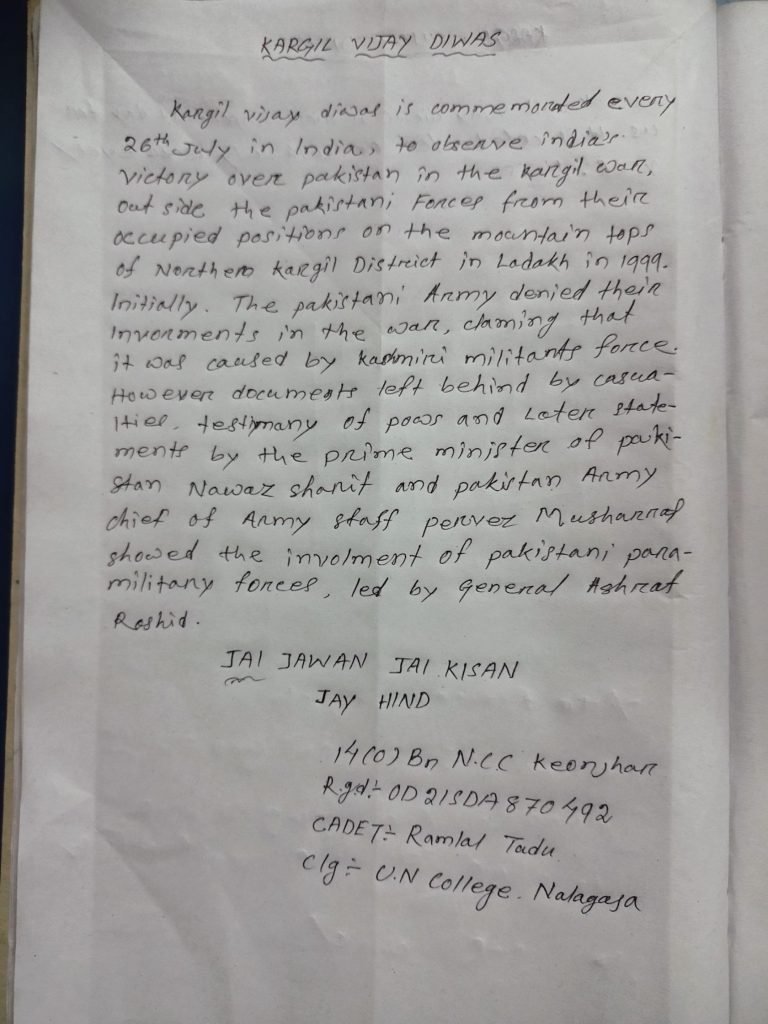 KARGIL VIJAY DIWAS
Kargil vijay diwas is commemorated every
26th July in India, to observe india's
victory over pakistan in the kargil war,
out side the pakistani Forces from their
occupied positions on the mountain tops
of Northern kargil District in Ladakh in 1999.
Initially. The pakistani Army denied their
Invorments in the war, claming that
it was caused by kashmiri militants force.
However documents left behind by casua-
lties, testimany of pows and Later state-
ments by the prime minister of paki-
stan Nawaz sharif and pakistan Army
chief of Army staff pervez Musharraf
showed the involment of pakistani para-
military forces, led by General Ashraf
Rashid.
JAI JAWAN JAI KISAN
JAY HIND
14(O) Bn N.C.C Keonjhar
Rgd:- OD21SDA870492
CADET:- Ramlal Tadu
Clg:- U.N College. Nalagaja